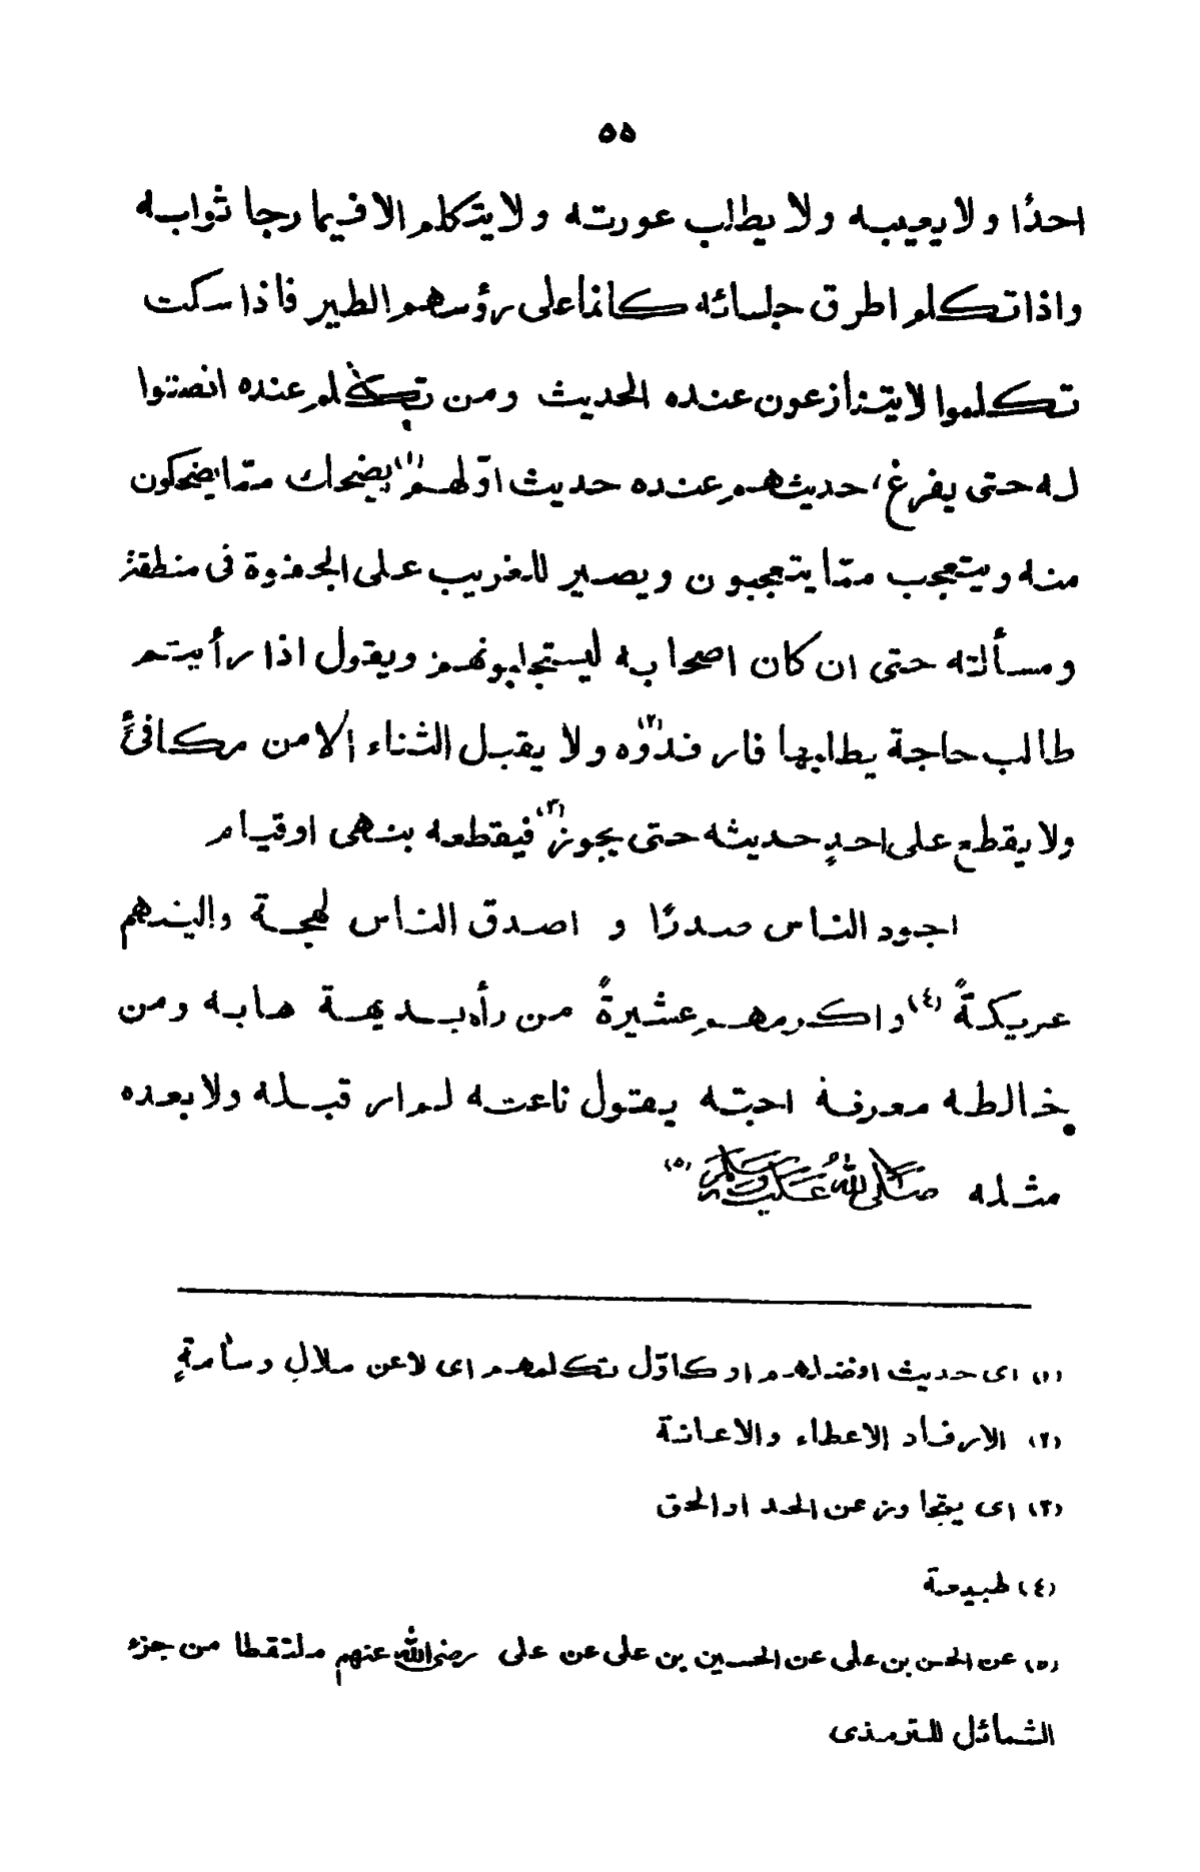 ٥٥
احدًا ولا يعيبه ولا يطلب عورته ولا يتكلم الا فيما رجا ثوابه
واذا تكلم اطرق جلسائه كانما على رؤسهم الطير فاذا سكت
تكلموا لا يتنازعون عنده الحديث ومن تكلم عنده انصتوا
له حتى يفرغ، حديثهم عنده حديث اوّلهم (١) يضحك ممّا يضحكون
منه ويتعجب ممّا يتعجبون ويصبر للغريب على الجفوة فى منطقه
ومسألته حتى ان كان اصحابه ليستجلبونهم ويقول اذا رأيتم
طالب حاجة يطلبها فارفدوه (٢) ولا يقبل الثناء الا من مكافئ
ولا يقطع على احدٍ حديثه حتى يجوز (٣) فيقطعه بنهى او قيام
اجود الناس صدرًا و اصدق الناس لهجة والينهم
عريكةً (٤) واكرمهم عشيرةً من رأه بديهة هابه ومن
خالطه معرفة احبّه يقول ناعته لم ار قبله ولا بعده
مثله صلى الله عليه وسلم (٥)
(١) اى حديث افضلهم او كاوّل تكلمهم اى لا عن ملالٍ وسأمةٍ
(٢) الارفاد الاعطاء والاعانة
(٣) اى يتجاوز عن الحد او الحق
(٤) طبيعة
(٥) عن الحسن بن على عن الحسين بن على عن على رضى الله عنهم ملتقطا من جزء
الشمائل للترمذى